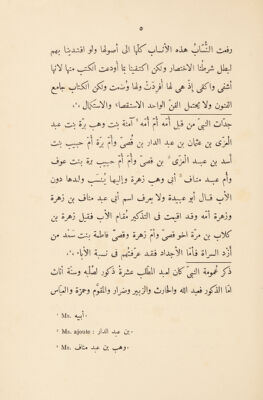 ٥
رفعت النُسّاب هذه الأنساب كلّها الى أصولها ولو اقتدينا بهم
لبطل شرطُنا الاختصار ولكن اكتفينا بما أودعت الكتب منها لانّها
أشفى واكفى إذ هى لها أُفردَتْ ولها وُسمت ولكن الكتاب جامع
الفنون ولا يحتمل الفنّ الواحد الاستقصاء والاستكمال ،'،
جدّات النبىّ من قبل أُمّه أمّ أُمّه ¹ آمنة بنت وهب برّة بنت عبد
العزّى بن عثمان بن عبد الدار بن قُصىّ وأمّ برّة أمّ حبيب بنت
أسد بن عبد العزّى ² بن قصىّ وأمّ حبيب برة بنت عوف
وأم عبد مناف ³ أبى وهب زهرة وإليها يُنسَب ولدها دون
الأب قال أبو عبيدة ولا يعرف اسم أبى عبد مناف بن زهرة
وزهرة أمّه وقد اقيمت فى التذكير مُقام الأب فقيل زهرة بن
كلاب بن مرّة اخو قصىّ وأمّ زهرة وقصىّ فاطمة بنت سَعْد من
أزد السراة فأمّا الأجداد فقد عرفتهم فى نسبة الآباء ،'،
ذكر عمومة النبىّ كان لعبد المطّلب عشرة ذكور لصُلْبه وستّ أناث
امّا الذكور فعبد الله والحارث والزبير وضرار والمقوَّم وحمزة والعبّاس
¹ Ms. أبيه.
² Ms. ajoute : بن عبد الدار.
³ Ms. وهب بن عبد مناف.